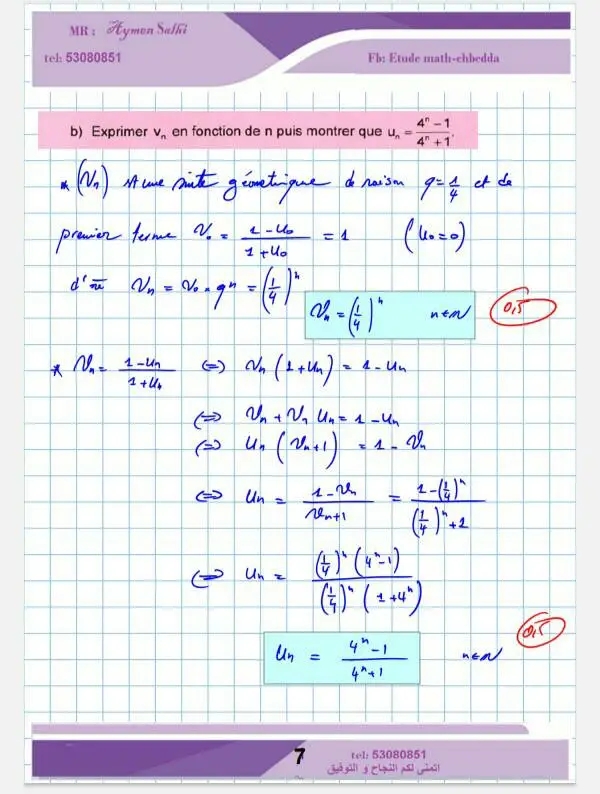 MR : Aymen Salhi
tel: 53080851
Fb: Etude math-chbedda
b) Exprimer vₙ en fonction de n puis montrer que uₙ = (4ⁿ − 1)/(4ⁿ + 1).
* (Vₙ) est une suite géométrique de raison q = 1/4 et de
premier terme V₀ = (1 − U₀)/(1 + U₀) = 1 (U₀ = 0)
d'où Vₙ = V₀ × qⁿ = (1/4)ⁿ
Vₙ = (1/4)ⁿ n ∈ ℕ 0,5
* Vₙ = (1 − Uₙ)/(1 + Uₙ) ⇔ Vₙ (1 + Uₙ) = 1 − Uₙ
⇔ Vₙ + Vₙ Uₙ = 1 − Uₙ
⇔ Uₙ (Vₙ + 1) = 1 − Vₙ
⇔ Uₙ = (1 − Vₙ)/(Vₙ + 1) = (1 − (1/4)ⁿ)/((1/4)ⁿ + 1)
⇔ Uₙ = ((1/4)ⁿ (4ⁿ − 1))/((1/4)ⁿ (1 + 4ⁿ))
0,5
Uₙ = (4ⁿ − 1)/(4ⁿ + 1) n ∈ ℕ
7
tel: 53080851
اتمنى لكم النجاح و التوفيق